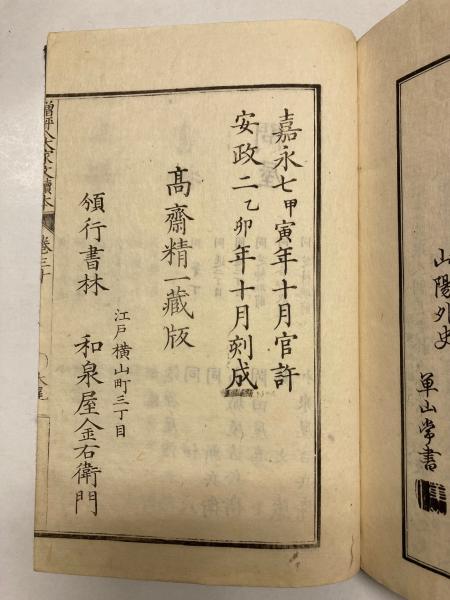 山陽外史
單山常書
嘉永七甲寅年十月官許
安政二乙卯年十月刻成
髙齋精一藏版
江戸横山町三丁目
頒行書林　和泉屋金右衛門
增評八大家文讀本　卷三十　大尾